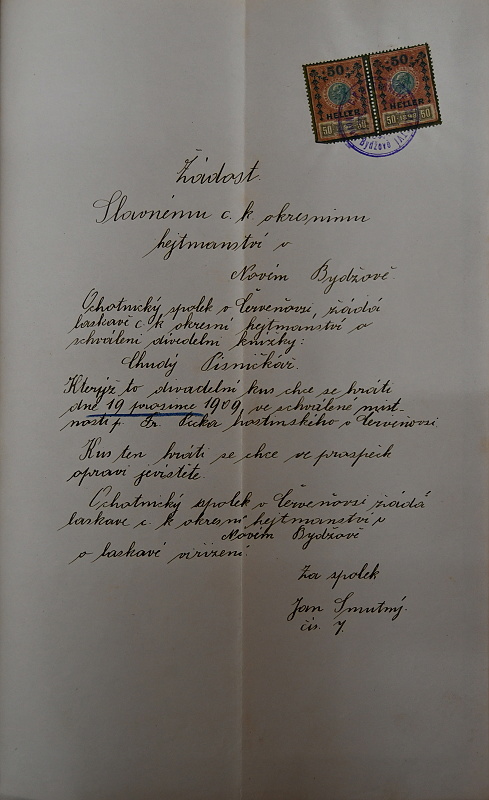 50 50
HELLER HELLER
50 50 50
Bydžově
Žádost.
Slavnému c. k. okresnimu
hejtmanství v
Novém Bydžově.
Ochotnický spolek v Červeňovsi, žádá
laskavě c. k okresní hejtmanství o
schválení divedelní knížky:
Chudý Písničkář.
Kterýž to divadelní kus chce se hráti
dne 19 prosince 1909, ve schválené míst-
nosti p. Fr. hostinského v Červeňovsi.
Kus ten hráti se chce ve prospěch
opravi jevištěte.
Ochotnický spolek v Červeňovsi žádá
laskave c. k okresní hejtmanství v
Novém Bydžově
o laskavé viřízení.
Za spolek
Jan Smutný.
čís. 7.